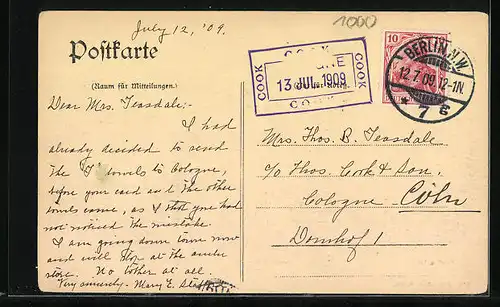 July 12, '09.
1000
Postkarte
(Raum für Mitteilungen.)
Dear Mrs. Teasdale:-
I had
already decided to send
the towels to Cologne,
before your card and the other
towels came, as I that you had
not noticed the mistake.
I am going down town now
and will stop at the
store. No bother at all
Very sincerely- Mary E.
COOK
COOK
13 JUL 1909
COOK
COOK
10
BERLIN N.W.
12.7.09.12-1N
* 7 g
Mrs. Thos. B. Teasdale
c/o Thos. Cook & Son,
Cologne Cöln
Domhof 1